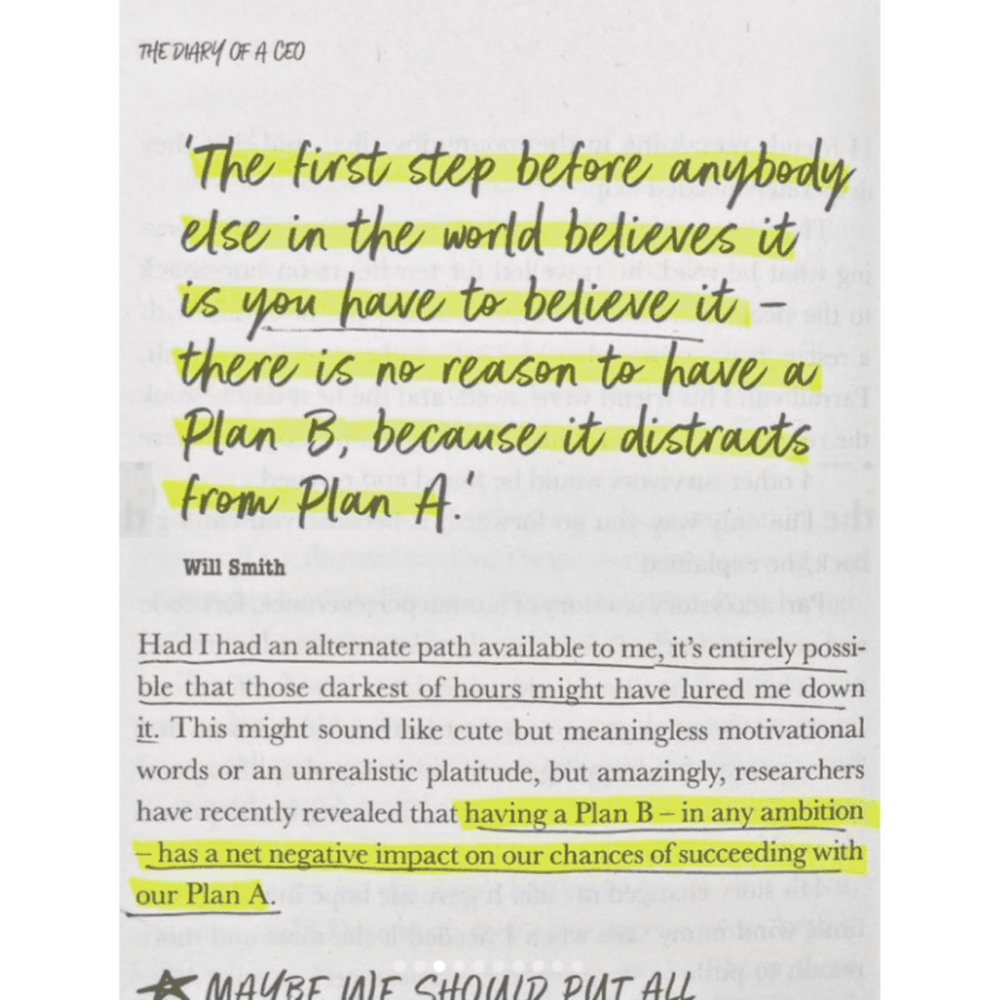 THE DIARY OF A CEO
'The first step before anybody
else in the world believes it
is you have to believe it –
there is no reason to have a
Plan B, because it distracts
from Plan A.'
Will Smith
Had I had an alternate path available to me, it's entirely possi-
ble that those darkest of hours might have lured me down
it. This might sound like cute but meaningless motivational
words or an unrealistic platitude, but amazingly, researchers
have recently revealed that having a Plan B – in any ambition
– has a net negative impact on our chances of succeeding with
our Plan A.
MAYBE WE SHOULD PUT ALL